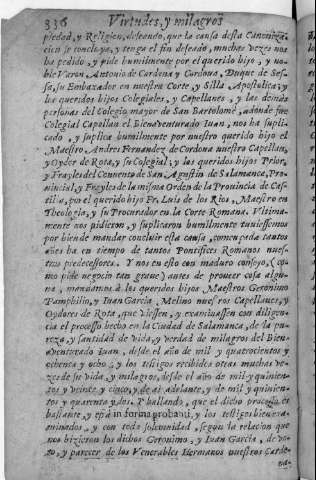 336 Virtudes, y milagros
piedad, y Religion, deseando, que la causa desta Canoniza-
cion se concluya, y tenga el fin deseado, muchas vezes nos
ha pedido, y pide humilmente por el querido hijo, y no-
ble Varon, Antonio de Cardona y Cordoua, Duque de Ses-
sa, su Embaxador en nuestra Corte, y Silla Apostolica; y
los queridos hijos Colegiales, y Capellanes, y las demàs
personas del Colegio mayor de San Bartolomè, adonde fue
Colegial Capellan el Bienauenturado Iuan, nos ha supli-
cado, y suplica humilmente por nuestro querido hijo el
Maestro Andres Fernandez de Cordoua nuestro Capellan,
y Oydor de Rota, y su Colegial; y los queridos hijos Prior,
y Frayles del Conuento de San Agustin de Salamanca, Pro-
uincial, y Frayles de la misma Orden de la Prouincia de Cas-
tilla, por el querido hijo Fr. Luis de los Rios, Maestro en
Theologia, y su Procurador en la Corte Romana. Vltima-
mente nos pidieron, y suplicaron humilmente tuuiessemos
por bien de mandar concluir esta causa, començada tantos
años ha en tiempo de tantos Pontifices Romanos nues-
tros predecessores. Y nos en esto con maduro consejo, (co-
mo pide negocio tan graue) antes de proueer cosa algu-
na, mandamos à los queridos hijos Maestros Geronimo
Pamphilio, y Iuan Garcia Melino nuestros Capellanes, y
Oydores de Rota, que viessen, y examinassen con diligen-
cia el processo hecho en la Ciudad de Salamanca, de la pu-
reza, y santidad de vida, y verdad de milagros del Bien-
auenturado Iuan, desde el año de mil y quatrocientos y
ochenta y ocho; y los testigos recibidos otras muchas ve-
zes de su vida, y milagros, desde el año de mil y quinien-
tos y veinte y cinco, y de aì adelante, y de mil y quinien-
tos y quarenta y dos. Y hallando, que el dicho processo es
bastante, y està in forma probanti, y los testigos bien exa-
minados, y con toda solemnidad, segun la relacion que
nos hizieron los dichos Geronimo, y Iuan Garcia, de vo-
to, y parecer de los Venerables Hermanos nuestros Carde-